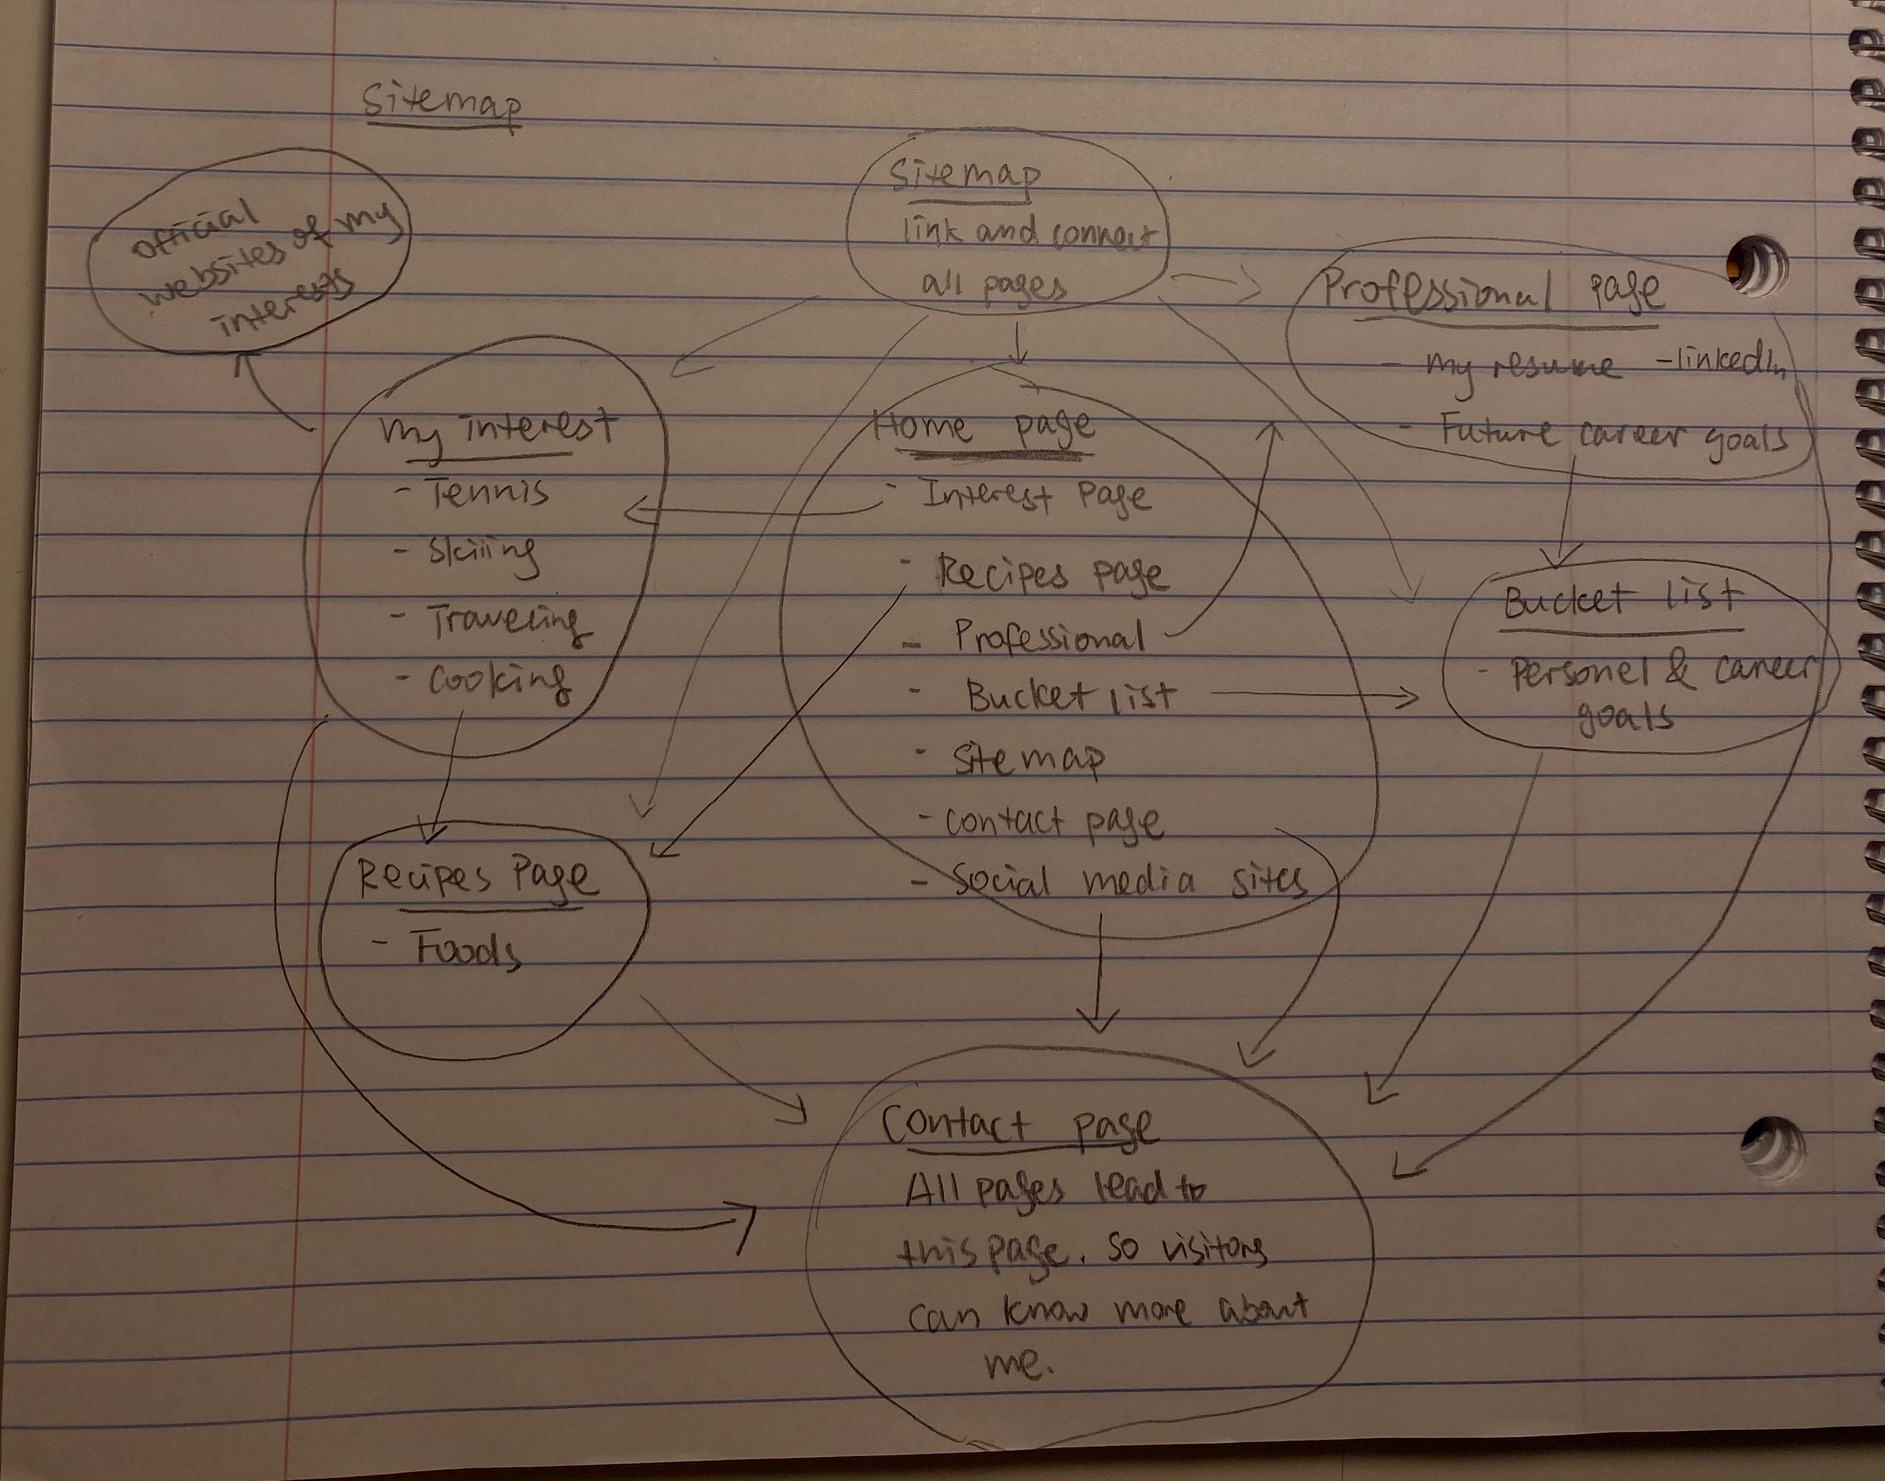 Sitemap
Sitemap
link and connect
all pages
official
websites of my
interests
Professional page
- my resume - linkedIn
- Future career goals
my interest
- Tennis
- Skiiing
- Traveling
- Cooking
Home page
- Interest Page
- Recipes page
- Professional
- Bucket list
- Sitemap
- contact page
- Social media sites
Bucket list
- Personel & career
goals
Recipes Page
- Foods
Contact page
All pages lead to
this page. so visitors
can know more about
me.